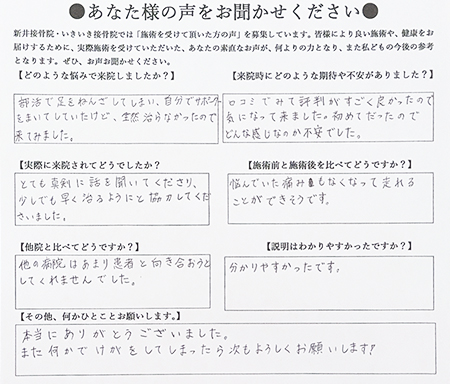 ●あなた様の声をお聞かせください●
新井接骨院・いきいき接骨院では「施術を受けて頂いた方の声」を募集しています。皆様により良い施術や、健康をお
届けするために、実際施術を受けていただいた、あなたの素直なお声が、何よりの力となり、また私どもの今後の参考
となります。ぜひ、お声お聞かせください。
【どのような悩みで来院しましたか？】
部活で足をねんざしてしまい、自分でサポーター
をまいてしていたけど、全然治らなかったので
来てみました。
【来院時にどのような期待や不安がありました？】
口コミでみて評判がすごく良かったので
気になって来ました。初めてだったので
どんな感じなのか不安でした。
【実際に来院されてどうでしたか？
とても真剣に話を聞いてくださり、
少しでも早く治るようにと協力してくだ
さいました。
【施術前と施術後を比べてどうですか？】
悩んでいた痛みもなくなって走れる
ことができそうです。
【他院と比べてどうですか？】
他の病院はあまり患者と向き合おうと
してくれませんでした。
【説明はわかりやすかったですか？】
分かりやすかったです。
【その他、何かひとことお願いします。】
本当にありがとうございました。
また何かでけがをしてしまったら次もよろしくお願いします!